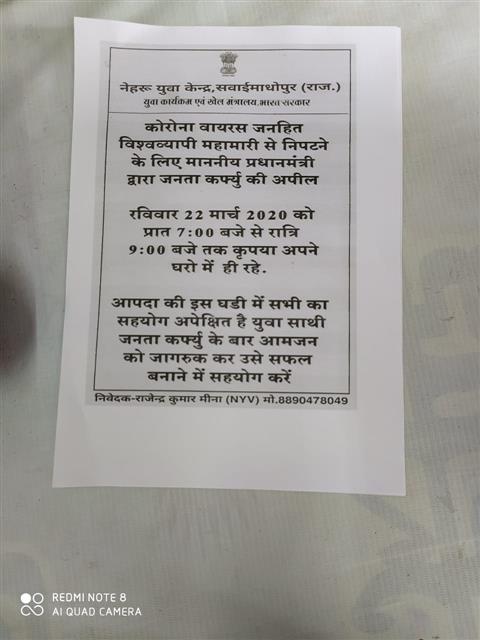 नेहरू युवा केन्द्र,सवाईमाधोपुर (राज.)
युवा कार्यकम एवं खेल मंत्रालय,भारत सरकार
कोरोना वायरस जनहित
विश्वव्यापी महामारी से निपटने
के लिए माननीय प्रधानमंत्री
द्वारा जनता कर्फ्यु की अपील
रविवार 22 मार्च 2020 को
प्रात 7:00 बजे से रात्रि
9:00 बजे तक कृपया अपने
घरो में ही रहे.
आपदा की इस घडी में सभी का
सहयोग अपेक्षित है युवा साथी
जनता कर्फ्यु के बार आमजन
को जागरुक कर उसे सफल
बनाने में सहयोग करें
निवेदक-राजेन्द्र कुमार मीना (NYV) मो.8890478049
REDMI NOTE 8
AI QUAD CAMERA